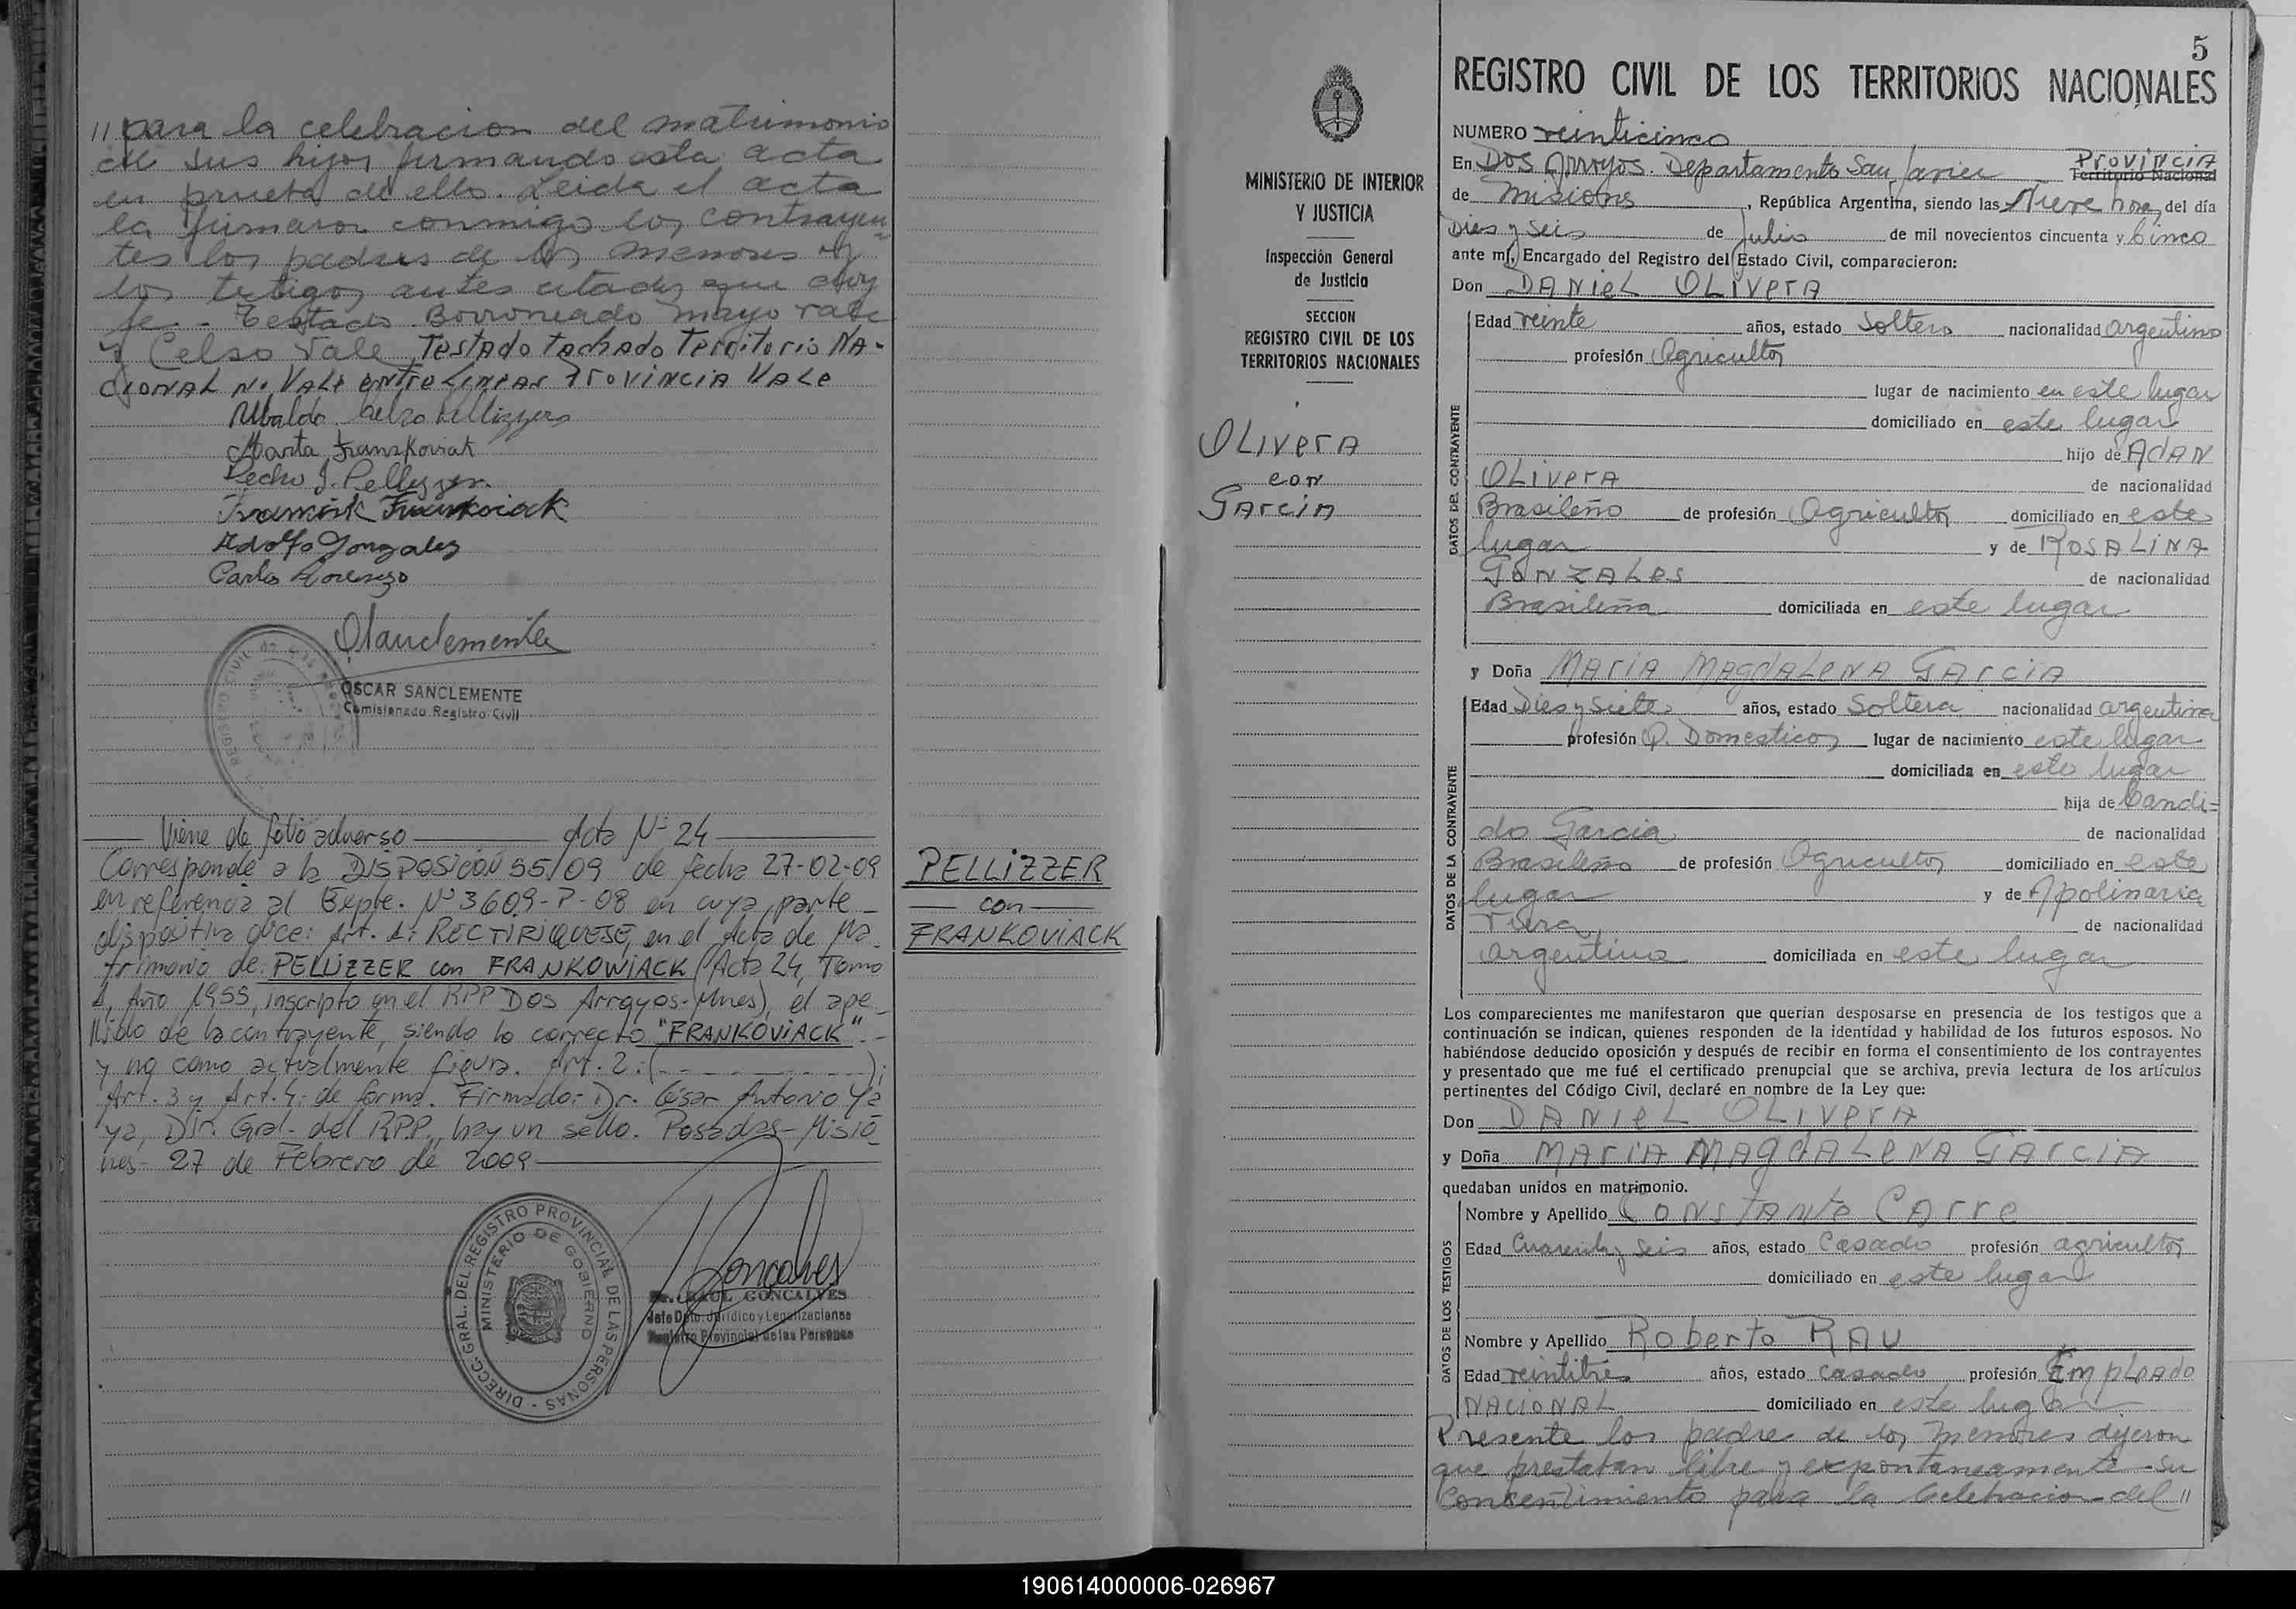 // para la celebracion del matrimonio
de sus hijos firmando esta acta
en prueba de ello. Leida el acta
la firmaron conmigo los contrayen=
tes los padres de los menores y
los testigos antes citados que doy
fe. - Testado Borroneado mayo vale
y Celso Vale. Testado tachado Territorio NA-
CIONAL No VALE entre Lineas Provincia VALE
Ubaldo Celso Pellizzer
Marta Franskoviak
Pedro J. Pellizzer
Adolfo Gonzalez
Carlos Lorenzo
OSCAR SANCLEMENTE
Comisionado Registro Civil
REGISTRO CIVIL
Viene de folio adverso Acta Nº 24
Corresponde a la DISPOSICIÓN 55/09 de fecha 27-02-09
en referencia al Expte. Nº 3609-P-08 en cuya parte
dispositiva dice: Art. 1: RECTIFIQUESE, en el Acta de Ma-
trimonio de: PELLIZZER con FRANKOWIACK (Acta 24, Tomo
1, Año 1955, inscripto en el RPP Dos Arroyos-Mnes), el ape-
llido de la contrayente, siendo lo correcto "FRANKOVIACK".-
y no como actualmente figura. Art. 2: (- - - - - - -);
Art. 3 y Art. 4: de forma. Firmado: Dr. César Antonio Ya
ya, Dir. Gral. del RPP., hay un sello. Posadas-Misio-
nes- 27 de Febrero de 2009
DIRECC. GRAL. DEL REGISTRO PROVINCIAL DE LAS PERSONAS -
MINISTERIO DE GOBIERNO
Goncalves
Dr. RAUL GONCALVES
Jefe Dpto. Jurídico y Legalizaciones
Registro Provincial de las Personas
PELLIZZER
con
FRANKOVIACK
MINISTERIO DE INTERIOR
Y JUSTICIA
Inspección General
de Justicia
SECCION
REGISTRO CIVIL DE LOS
TERRITORIOS NACIONALES
OLIVERA
con
GARCIA
5
REGISTRO CIVIL DE LOS TERRITORIOS NACIONALES
NUMERO veinticinco
En Dos Arroyos. Departamento San Javier Provincia Territorio Nacional
de Misiones, República Argentina, siendo las Nueve horas del día
Dies y Seis de Julio de mil novecientos cincuenta y Cinco
ante mí, Encargado del Registro del Estado Civil, comparecieron:
Don DANIEL OLIVERA
DATOS DEL CONTRAYENTE
Edad veinte años, estado Soltero nacionalidad argentino
profesión Agricultor
lugar de nacimiento en este lugar
domiciliado en este lugar
hijo de ADAN
OLIVERA de nacionalidad
Brasileño de profesión Agricultor domiciliado en este
lugar y de ROSALINA
GONZALES de nacionalidad
Brasileña domiciliada en este lugar
y Doña MARIA MAGDALENA GARCIA
DATOS DE LA CONTRAYENTE
Edad Dies y Siete años, estado Soltera nacionalidad argentina
profesión Q. Domesticos lugar de nacimiento este lugar
domiciliada en este lugar
hija de Candi=
do Garcia de nacionalidad
Brasileño de profesión Agricultor domiciliado en este
lugar y de Apolinaria
de nacionalidad
argentina domiciliada en este lugar
Los comparecientes me manifestaron que querían desposarse en presencia de los testigos que a
continuación se indican, quienes responden de la identidad y habilidad de los futuros esposos. No
habiéndose deducido oposición y después de recibir en forma el consentimiento de los contrayentes
y presentado que me fué el certificado prenupcial que se archiva, previa lectura de los artículos
pertinentes del Código Civil, declaré en nombre de la Ley que:
Don DANIEL OLIVERA
y Doña MARIA MAGDALENA GARCIA
quedaban unidos en matrimonio.
DATOS DE LOS TESTIGOS
Nombre y Apellido CONSTANTE CARRE
Edad Cuarenta y Seis años, estado Casado profesión agricultor
domiciliado en este lugar
Nombre y Apellido Roberto RAU
Edad veintitres años, estado casado profesión EMPLEADO
NACIONAL domiciliado en este lugar
Presente los padres de los menores dijeron
que prestaban libre y expontaneamente su
Consentimiento para la Celebracion del //
190614000006-026967